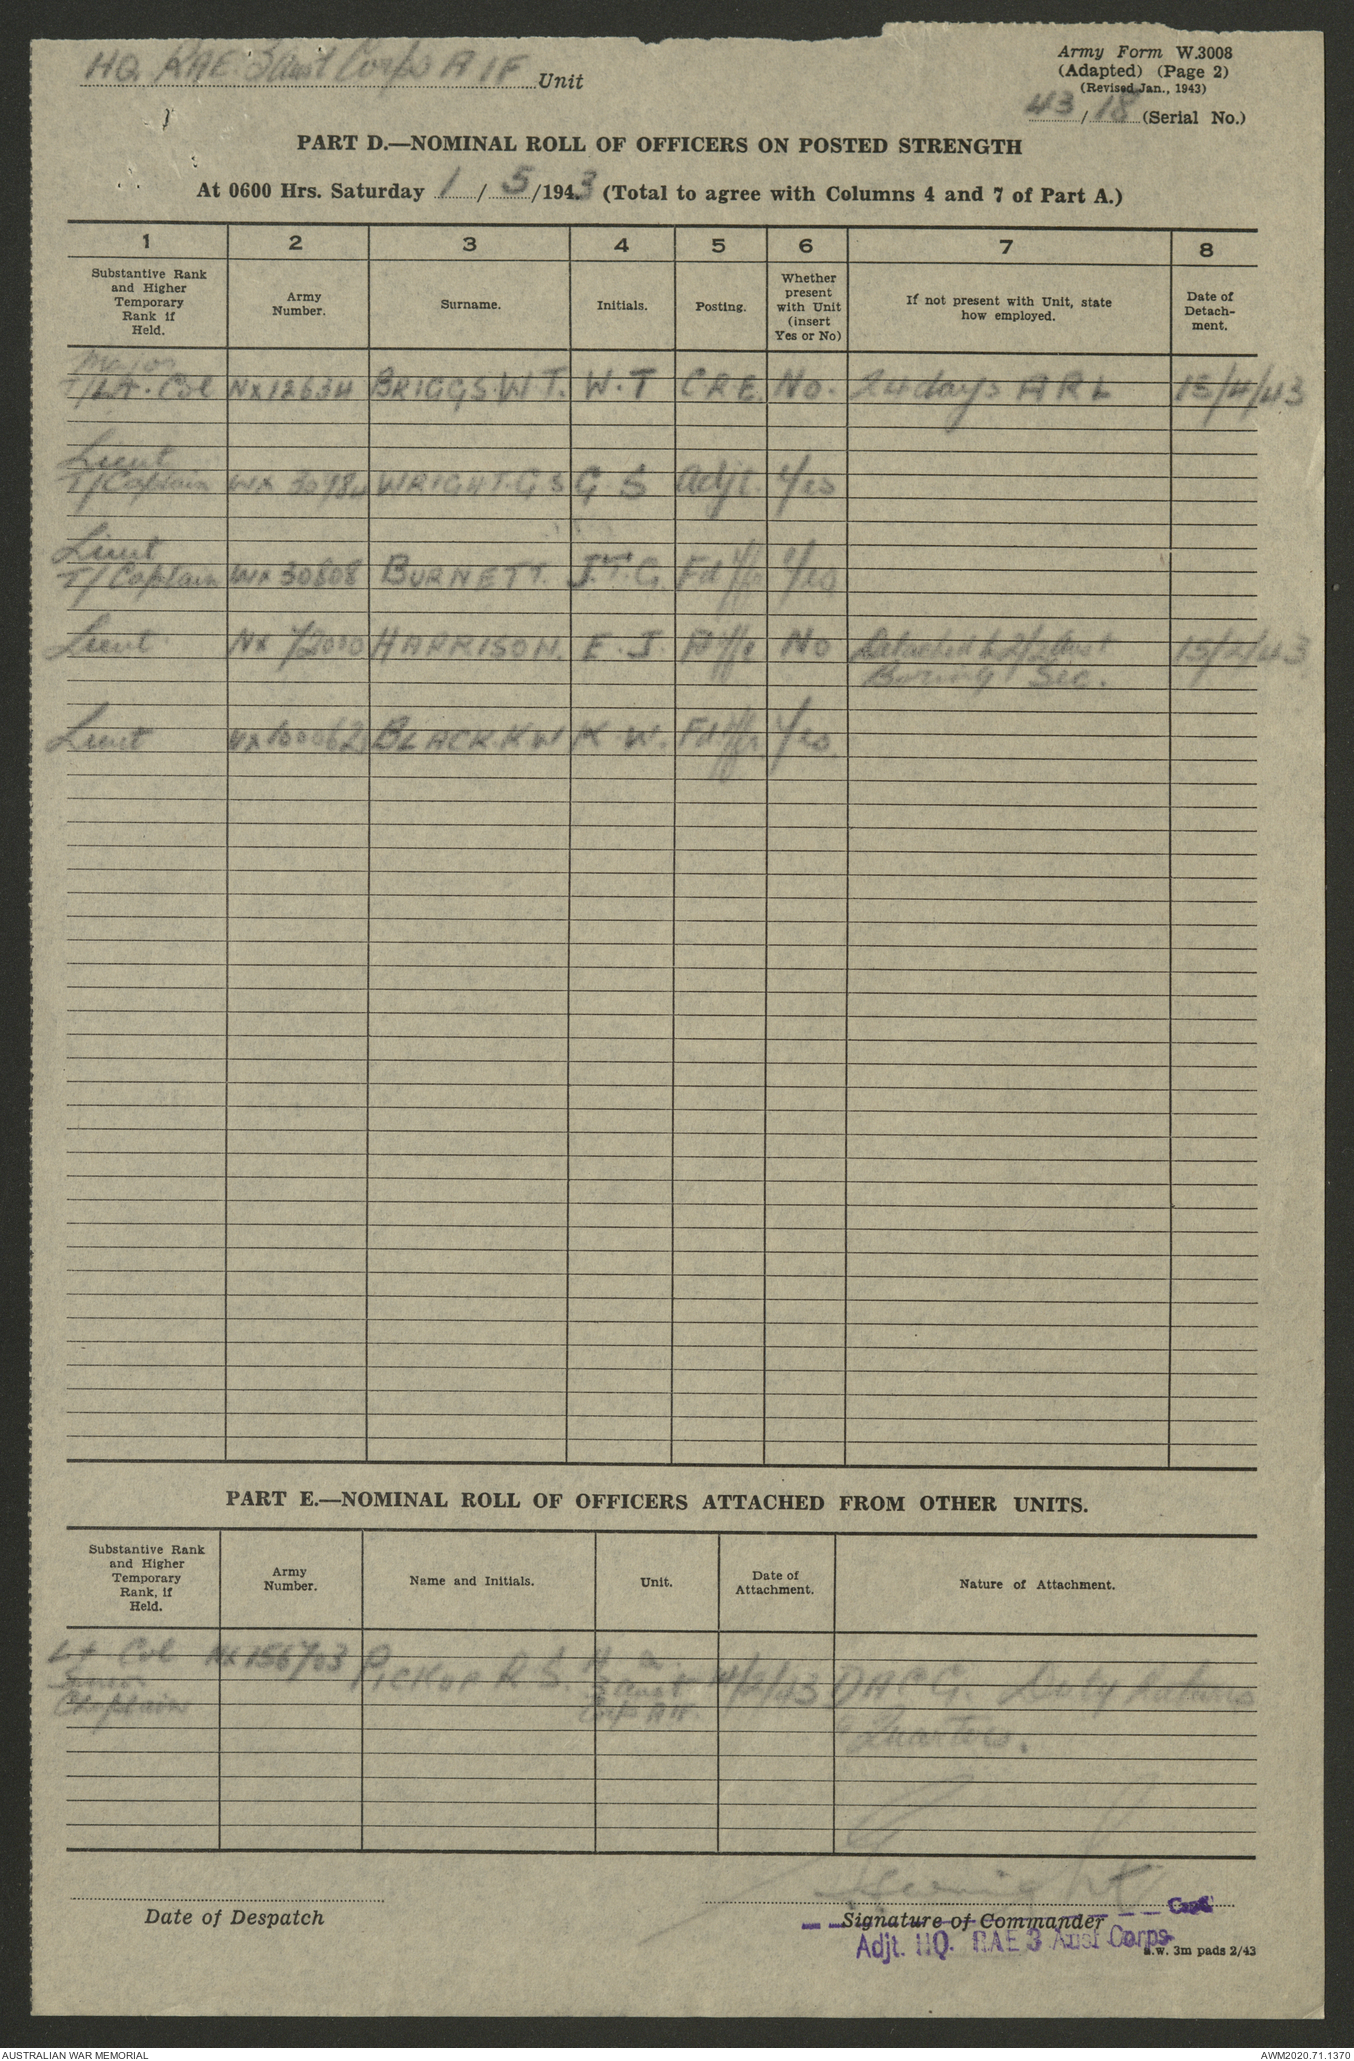 HQ RAE 3 Aust Corps AIF Unit
Army Form W.3008
(Adapted) (Page 2)
(Revised Jan., 1943)
43 / 18 (Serial No.)
PART D.—NOMINAL ROLL OF OFFICERS ON POSTED STRENGTH
At 0600 Hrs. Saturday 1 / 5 /1943 (Total to agree with Columns 4 and 7 of Part A.)
1 2 3 4 5 6 7 8
Substantive Rank and Higher Temporary Rank if Held. Army Number. Surname. Initials. Posting. Whether present with Unit (insert Yes or No) If not present with Unit, state how employed. Date of Detach-ment.
Major
T/Lt. Col NX12634 BRIGGS W.T. W.T CRE. No. 24 days ARL 15/4/43
Lieut
T/Captain WX 30984 WRIGHT. G S G. S Adjt. Yes
Lieut
T/Captain WX 30808 BURNETT. J.T.G. Fd Offr Yes
Lieut NX 72000 HARRISON. E. J. Offr No Detached to 2/2 Aust 15/2/43
Boring Sec.
Lieut BLACK. K W K. W. Fd Offr. Yes
PART E.—NOMINAL ROLL OF OFFICERS ATTACHED FROM OTHER UNITS.
Substantive Rank and Higher Temporary Rank, if Held. Army Number. Name and Initials. Unit. Date of Attachment. Nature of Attachment.
Lt Col NX156703 PICKUP R S. H Q 4/2/43 DACG. Duty Rations
Senior 3 Aust
Chaplain Corps AIF. & Quarters.
Date of Despatch
Signature of Commander
Capt
Adjt. HQ. RAE 3 Aust Corps
w. 3m pads 2/43
AUSTRALIAN WAR MEMORIAL AWM2020.71.1370